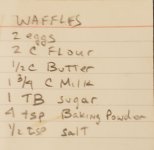 WAFFLES
2 eggs
2 C Flour
1/2 C Butter
1 3/4 C Milk
1 TB sugar
4 tsp Baking Powder
1/2 tsp salt